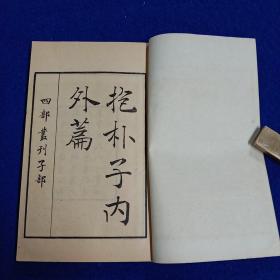 抱朴子内
外篇
四部叢刊子部